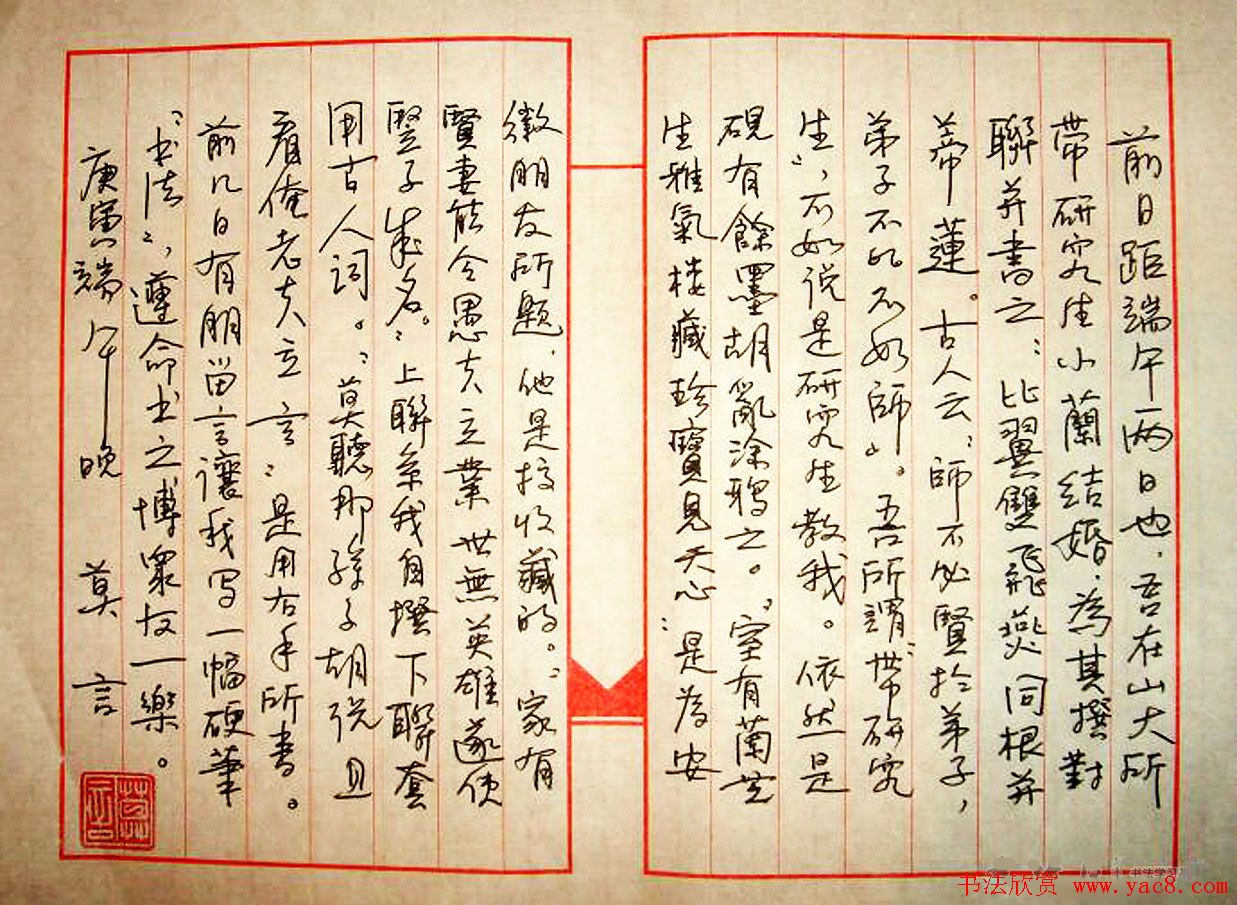 前日距端午两日也．吾在山大所
带研究生小蘭结婚．為其撰對
聯并書之：比翼雙飛燕同根并
蒂蓮。古人云：師不必賢於弟子，
弟子不必不如師」。吾所謂“带研究
生”，不如说是研究生教我。依然是
硯有餘墨胡亂涂鴉之。“室有蘭芝
生雅氣楼藏珍寶見天心”是為安
徽朋友所题．他是搞收藏的。“家有
賢妻能令愚夫立業世無英雄遂使
竪子成名。”上聯系我自撰下聯套
用古人词。“莫聽那孫子胡说且
看俺老夫立言”是用右手所書。
前几日有朋留言讓我写一幅硬筆
“书法”，遵命书之博衆友一樂。
庚寅端午晚 莫言
莫言
书法欣赏 www.yac8.com